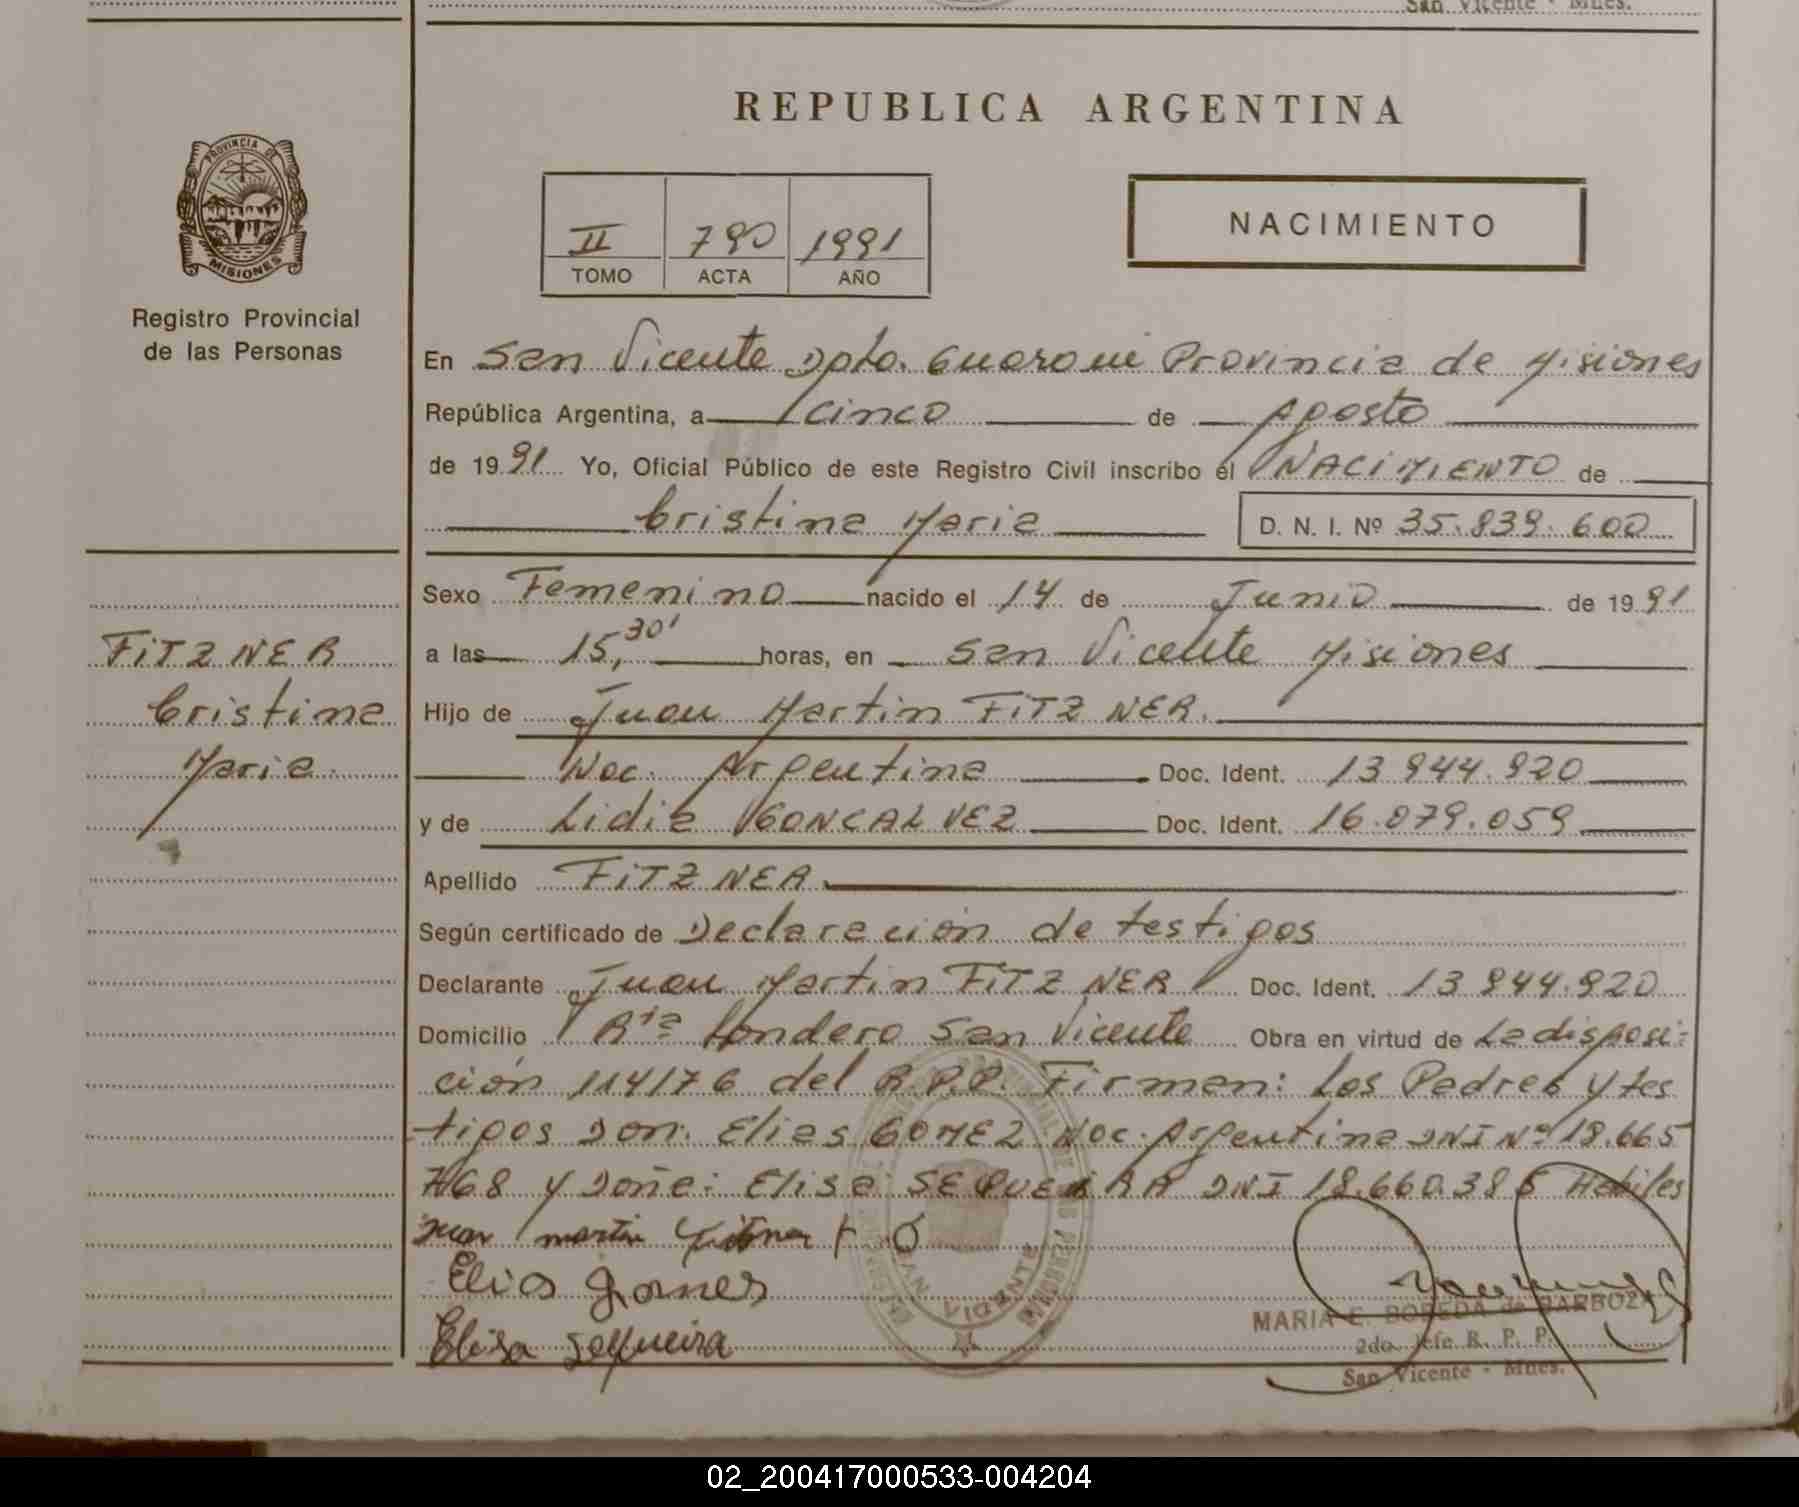 San Vicente - Mnes.
REPUBLICA ARGENTINA
PROVINCIA DE
MISIONES
Registro Provincial
de las Personas
II 790 1991
TOMO ACTA AÑO
NACIMIENTO
En San Vicente Dpto. Guarani Provincia de Misiones
República Argentina, a cinco de Agosto
de 1991 Yo, Oficial Público de este Registro Civil inscribo el NACIMIENTO de
Cristina Maria D. N. I. Nº 35.839.600
Sexo Femenino nacido el 14 de Junio de 1991
a las 15,30' horas, en San Vicente Misiones
FITZNER
Cristina
Maria.
Hijo de Juan Martin FITZNER.
Nac. Argentina Doc. Ident. 13 944.920
y de Lidia GONCALVEZ Doc. Ident. 16.079.059
Apellido FITZNER
Según certificado de Declaración de testigos
Declarante Juan Martin FITZNER Doc. Ident. 13 944.920
Domicilio Bia Londero San Vicente Obra en virtud de La disposi-
ción 114176 del R.P.P. Firman: Los Padres y tes
tigos Don: Elias GOMEZ Nac. Argentina DNI Nº 18.665
768 y Doña: Elisa SEQUEIRA DNI 18.660.385 Habiles
Juan martin Fitzner
Elias Gomes
Elisa Sequeira
SAN VICENTE
MARIA E. BOBEDA de BARBOZA
2do. Jefe R. P. P.
San Vicente - Mnes.
02_200417000533-004204